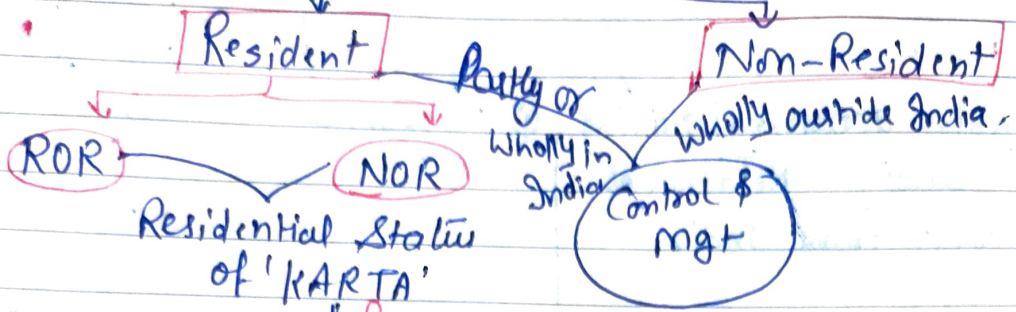 Resident
Non-Resident
Partly or
Wholly in
India
Wholly outside India.
ROR
NOR
Control &
Mgt
Residential Status
of 'KARTA'